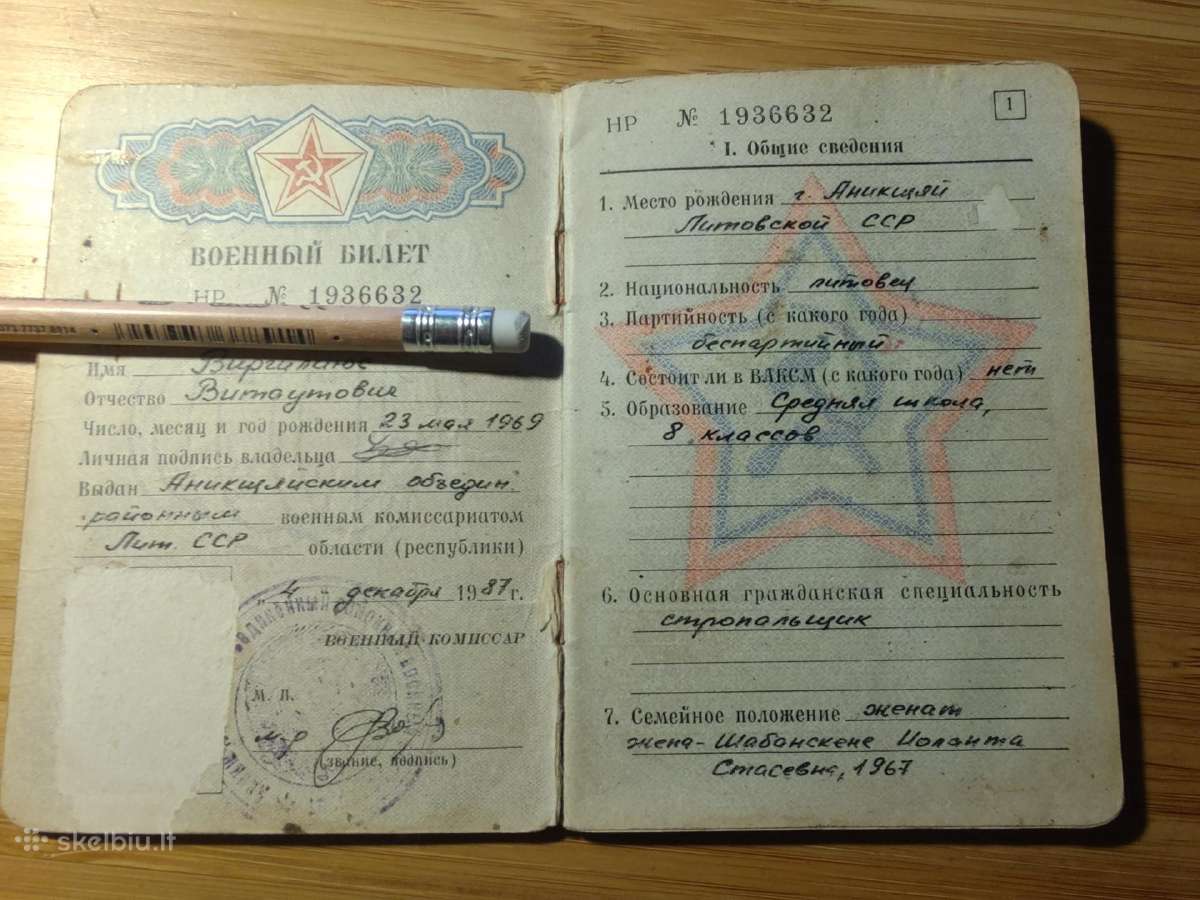 ВОЕННЫЙ БИЛЕТ
НР № 1936632
Имя
Отчество Витаутович
Число, месяц и год рождения 23 мая 1969
Личная подпись владельца
Выдан Аникщяйским объедин.
районным военным комиссариатом
Лит. ССР области (республики)
"4" декабря 1987 г.
ВОЕННЫЙ КОМИССАР
М. П.
м-р
(звание, подпись)
НР № 1936632
1
I. Общие сведения
1. Место рождения г. Аникщяй
Литовской ССР
2. Национальность литовец
3. Партийность (с какого года)
беспартийный
4. Состоит ли в ВЛКСМ (с какого года) нет
5. Образование Средняя школа,
8 классов
6. Основная гражданская специальность
стропальщик
7. Семейное положение женат
жена - Шабанскене Иоланта
Стасевна, 1967
skelbiu.lt